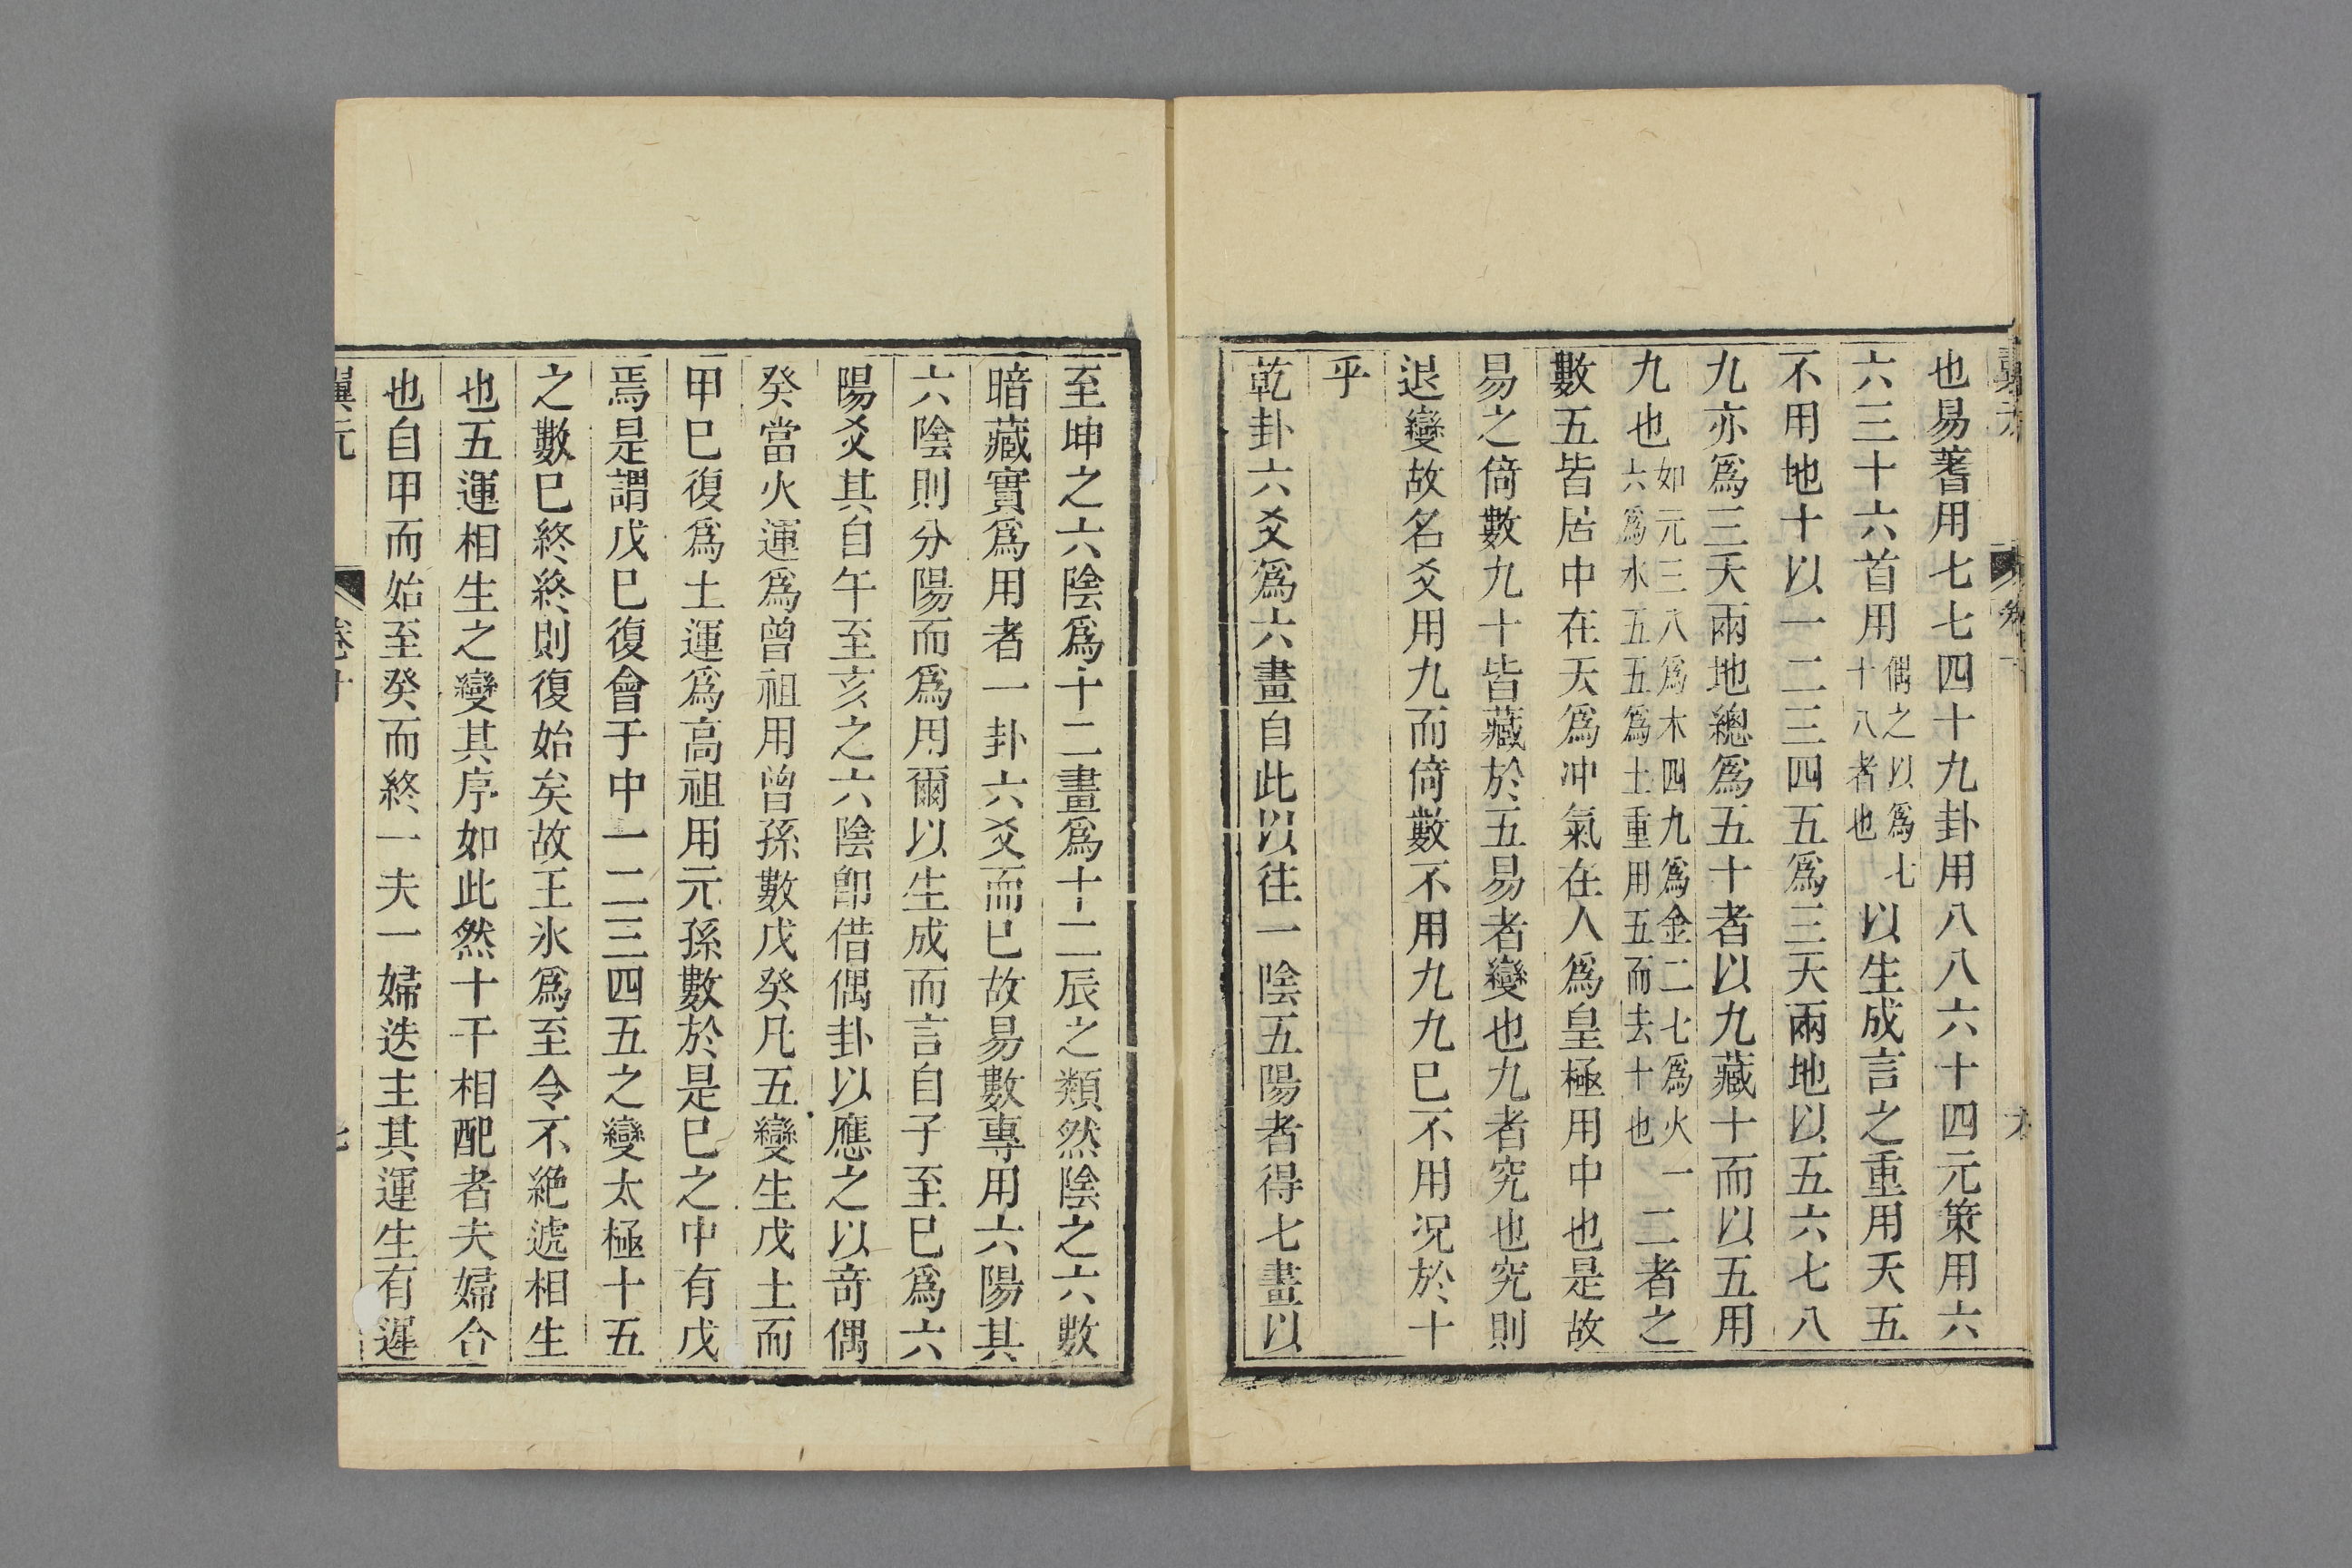 翼元
卷十
六
也易蓍用七七四十九卦用八八六十四元策用六
六三十六首用偶之以爲七十八者也以生成言之重用天五
不用地十以一二三四五爲三天兩地以五六七八
九亦爲三天兩地總爲五十者以九藏十而以五用
九也如元三八爲木四九爲金二七爲火一六爲水五五爲土重用五而去十也二者之
數五皆居中在天爲冲氣在人爲皇極用中也是故
易之倚數九十皆藏於五易者變也九者究也究則
退變故名爻用九而倚數不用九九巳不用况於十
乎
乾卦六爻爲六畫自此以往一陰五陽者得七畫以
至坤之六陰爲十二畫爲十二辰之類然陰之六數
暗藏實爲用者一卦六爻而已故易數專用六陽其
六陰則分陽而爲用爾以生成而言自子至巳爲六
陽爻其自午至亥之六陰卽借偶卦以應之以竒偶
癸當火運爲曾祖用曾孫數戊癸凡五變生戊土而
甲巳復爲土運爲高祖用元孫數於是巳之中有戊
焉是謂戊巳復會于中一二三四五之變太極十五
之數巳終終則復始矣故王氷爲至令不絶遞相生
也五運相生之變其序如此然十干相配者夫婦合
也自甲而始至癸而終一夫一婦迭主其運生有遲
翼元
卷十
七